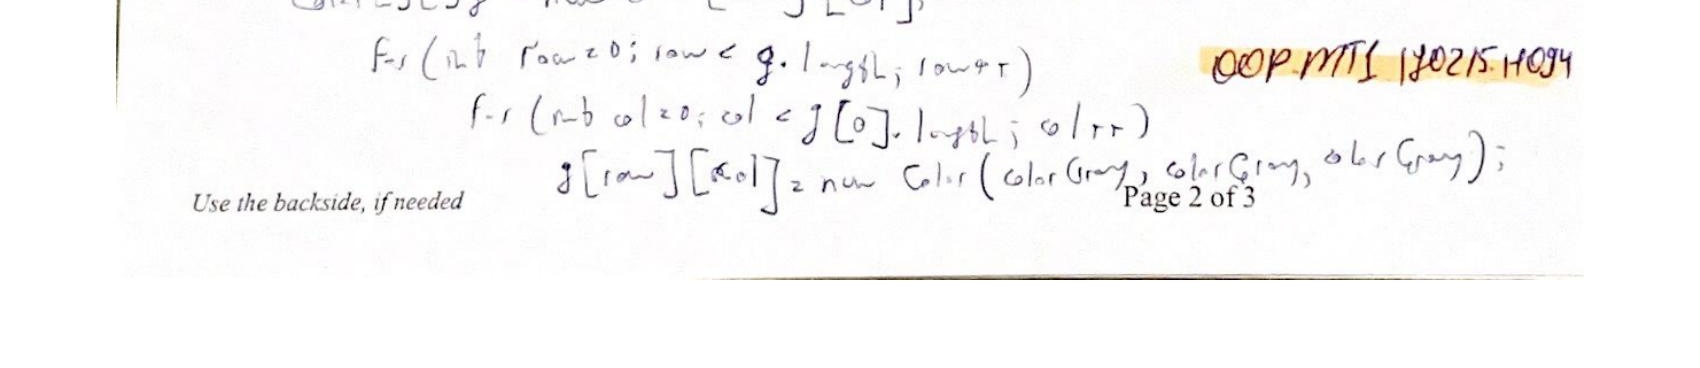 for (int row = 0; row < g.length; row++)
OOP.MT1.170215.H094
for (int col = 0; col < g[0].length; col++)
g[row][col] = new Color(colorGray, colorGray, colorGray);
Use the backside, if needed
Page 2 of 3